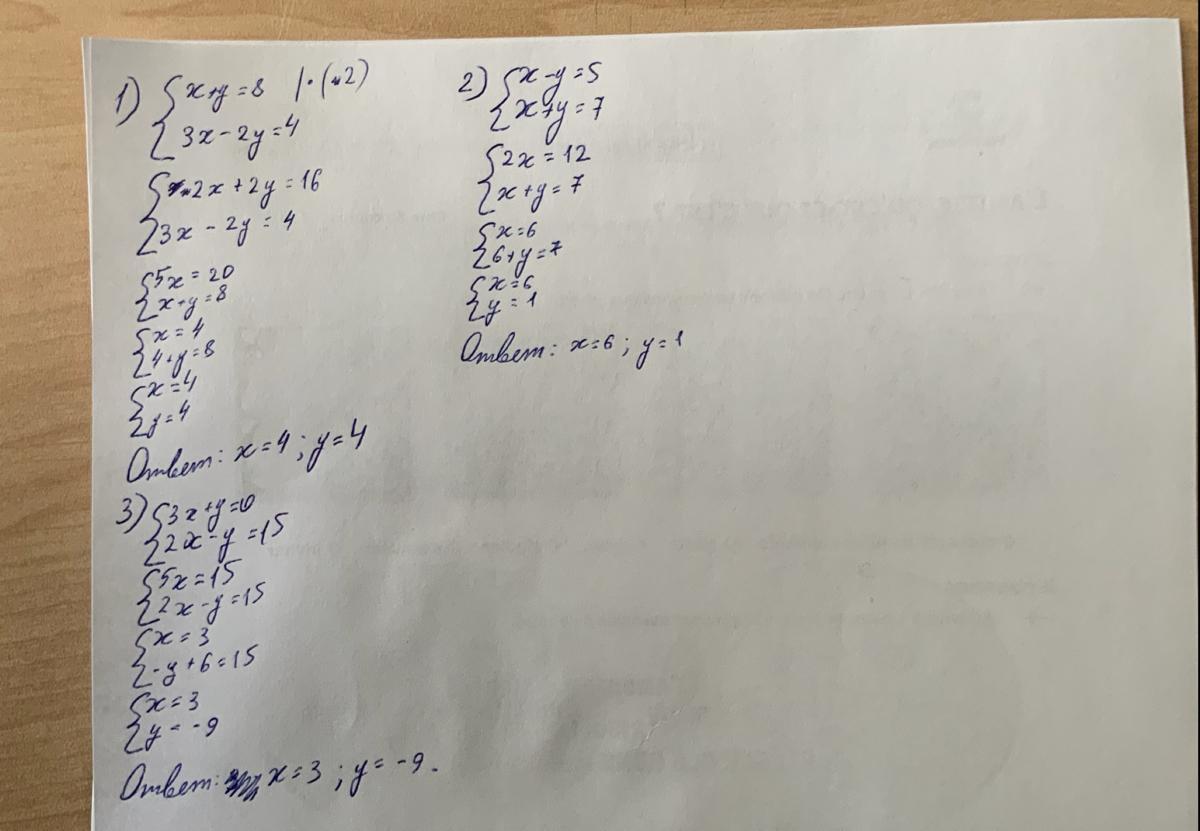 1) { x+y=8 |·(2)
3x-2y=4
{ 2x+2y=16
3x-2y=4
{ 5x=20
x+y=8
{ x=4
4+y=8
{ x=4
y=4
Ответ: x=4; y=4
2) { x-y=5
x+y=7
{ 2x=12
x+y=7
{ x=6
6+y=7
{ x=6
y=1
Ответ: x=6; y=1
3) { 3x+y=0
2x-y=15
{ 5x=15
2x-y=15
{ x=3
-y+6=15
{ x=3
y=-9
Ответ: x=3; y=-9.